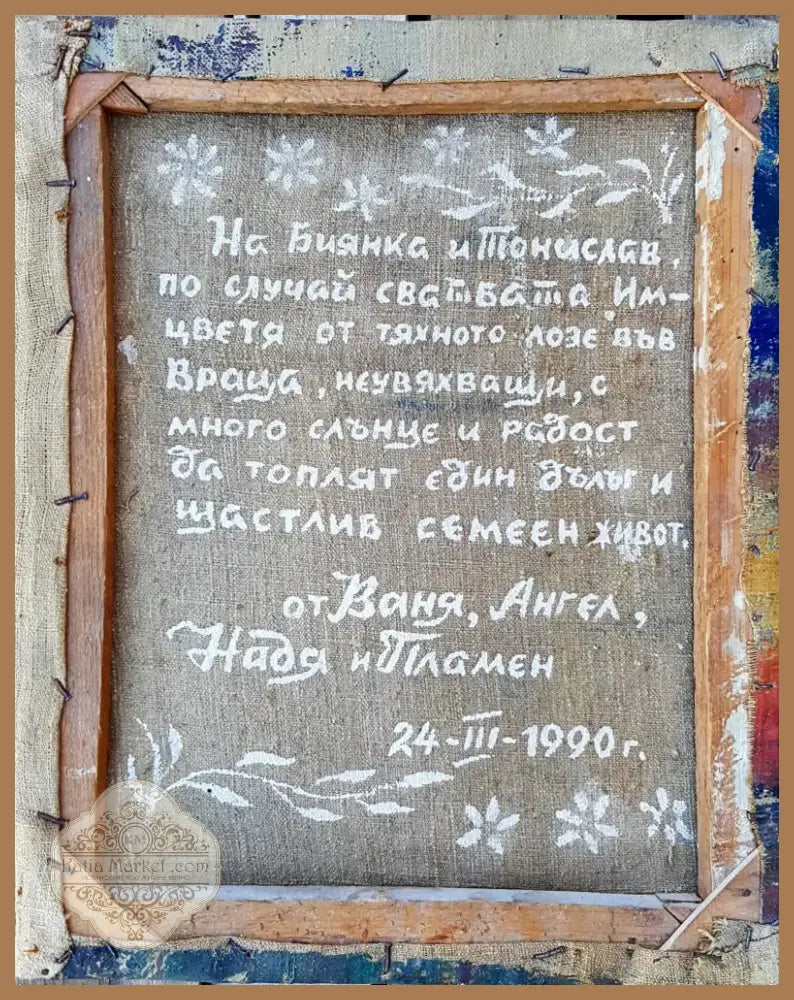 На Биянка и Тонислав,
по случай сватбата Им-
цветя от тяхното лозе във
Враца, неувяхващи, с
много слънце и радост
да топлят един дълъг и
щастлив семеен живот.
от Ваня, Ангел,
Надя и Пламен
24-III-1990 г.
KM
Katia Market .com